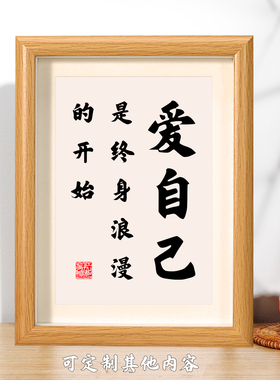 爱自己
是终身浪漫
的开始
可定制其他内容